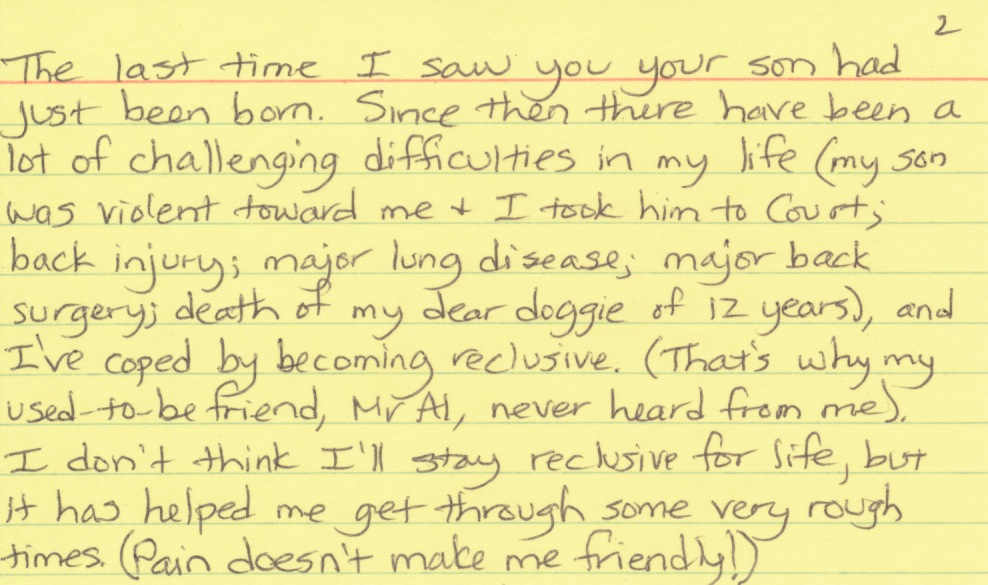 2
The last time I saw you your son had
just been born. Since then there have been a
lot of challenging difficulties in my life (my son
was violent toward me + I took him to Court;
back injury; major lung disease; major back
surgery; death of my dear doggie of 12 years), and
I've coped by becoming reclusive. (That's why my
used-to-be friend, Mr Al, never heard from me).
I don't think I'll stay reclusive for life, but
it has helped me get through some very rough
times. (Pain doesn't make me friendly!)